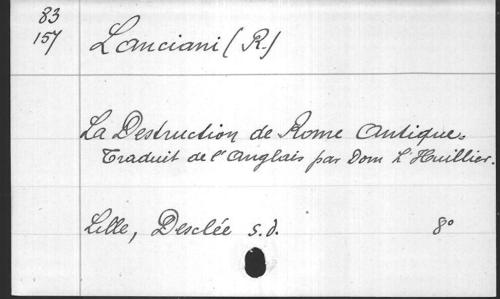 83
157
Lanciani (R.)
La Destruction de Rome Antique.
Traduit de l'Anglais par Dom L'Huillier.
Lille, Desclée s.d. 8°